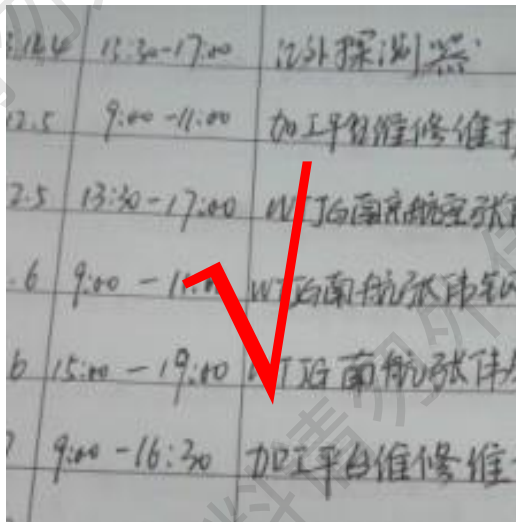 13:30-17:00 红外探测器
12.5 9:00-11:00 加工平台维修维
2.5 13:30-17:00 WTJG南京航空张
.6 9:00-11:00 WTJG南航张伟
6 15:00-19:00 WTJG南航张伟
9:00-16:30 加工平台维修维